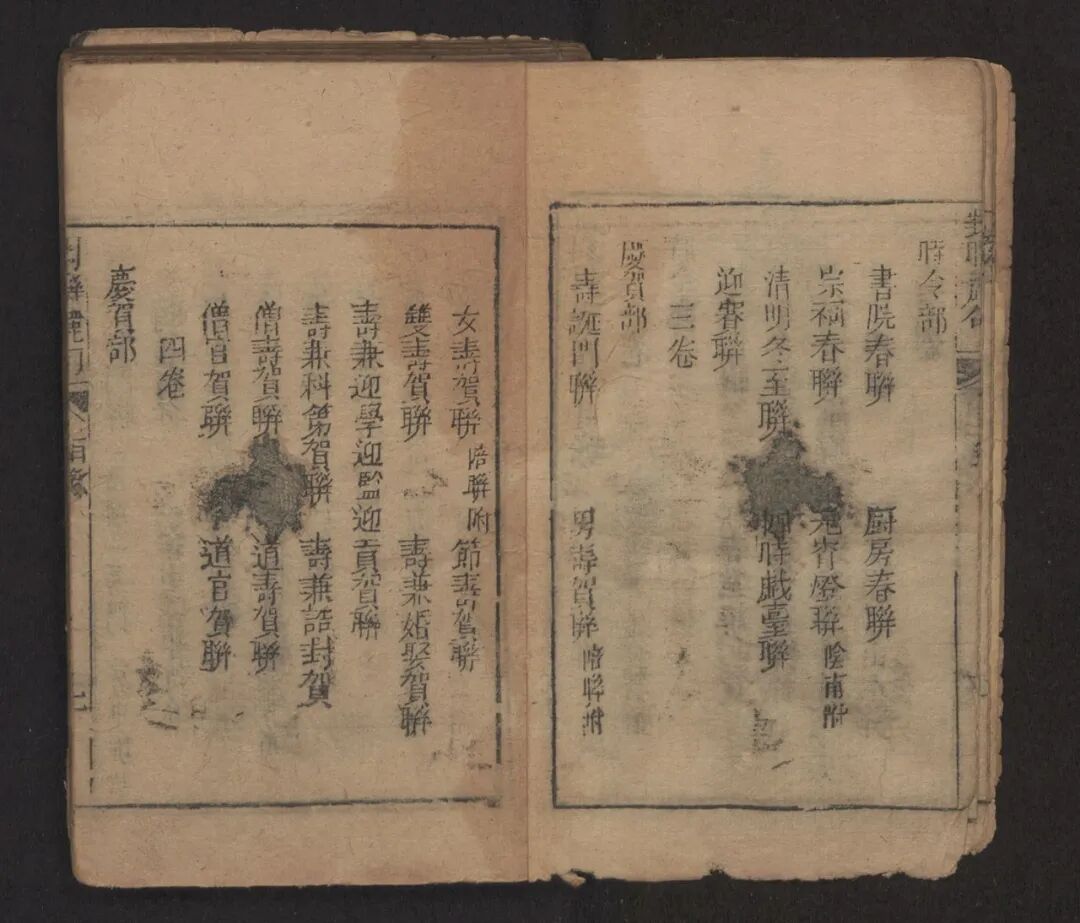 時令部
書院春聯　厨房春聯
宗祠春聯　元宵燈聯
清明冬至聯　四時戯臺聯
迎春聯
三卷
慶賀部
壽誕門聯　男壽賀聯 陪聯附
女壽賀聯 陪聯附 節壽賀聯
雙壽賀聯　壽兼婚娶賀聯
壽兼迎學迎監迎貢賀聯
壽兼科第賀聯　壽兼誥封賀
僧壽賀聯　道壽賀聯
僧官賀聯　道官賀聯
四卷
慶賀部